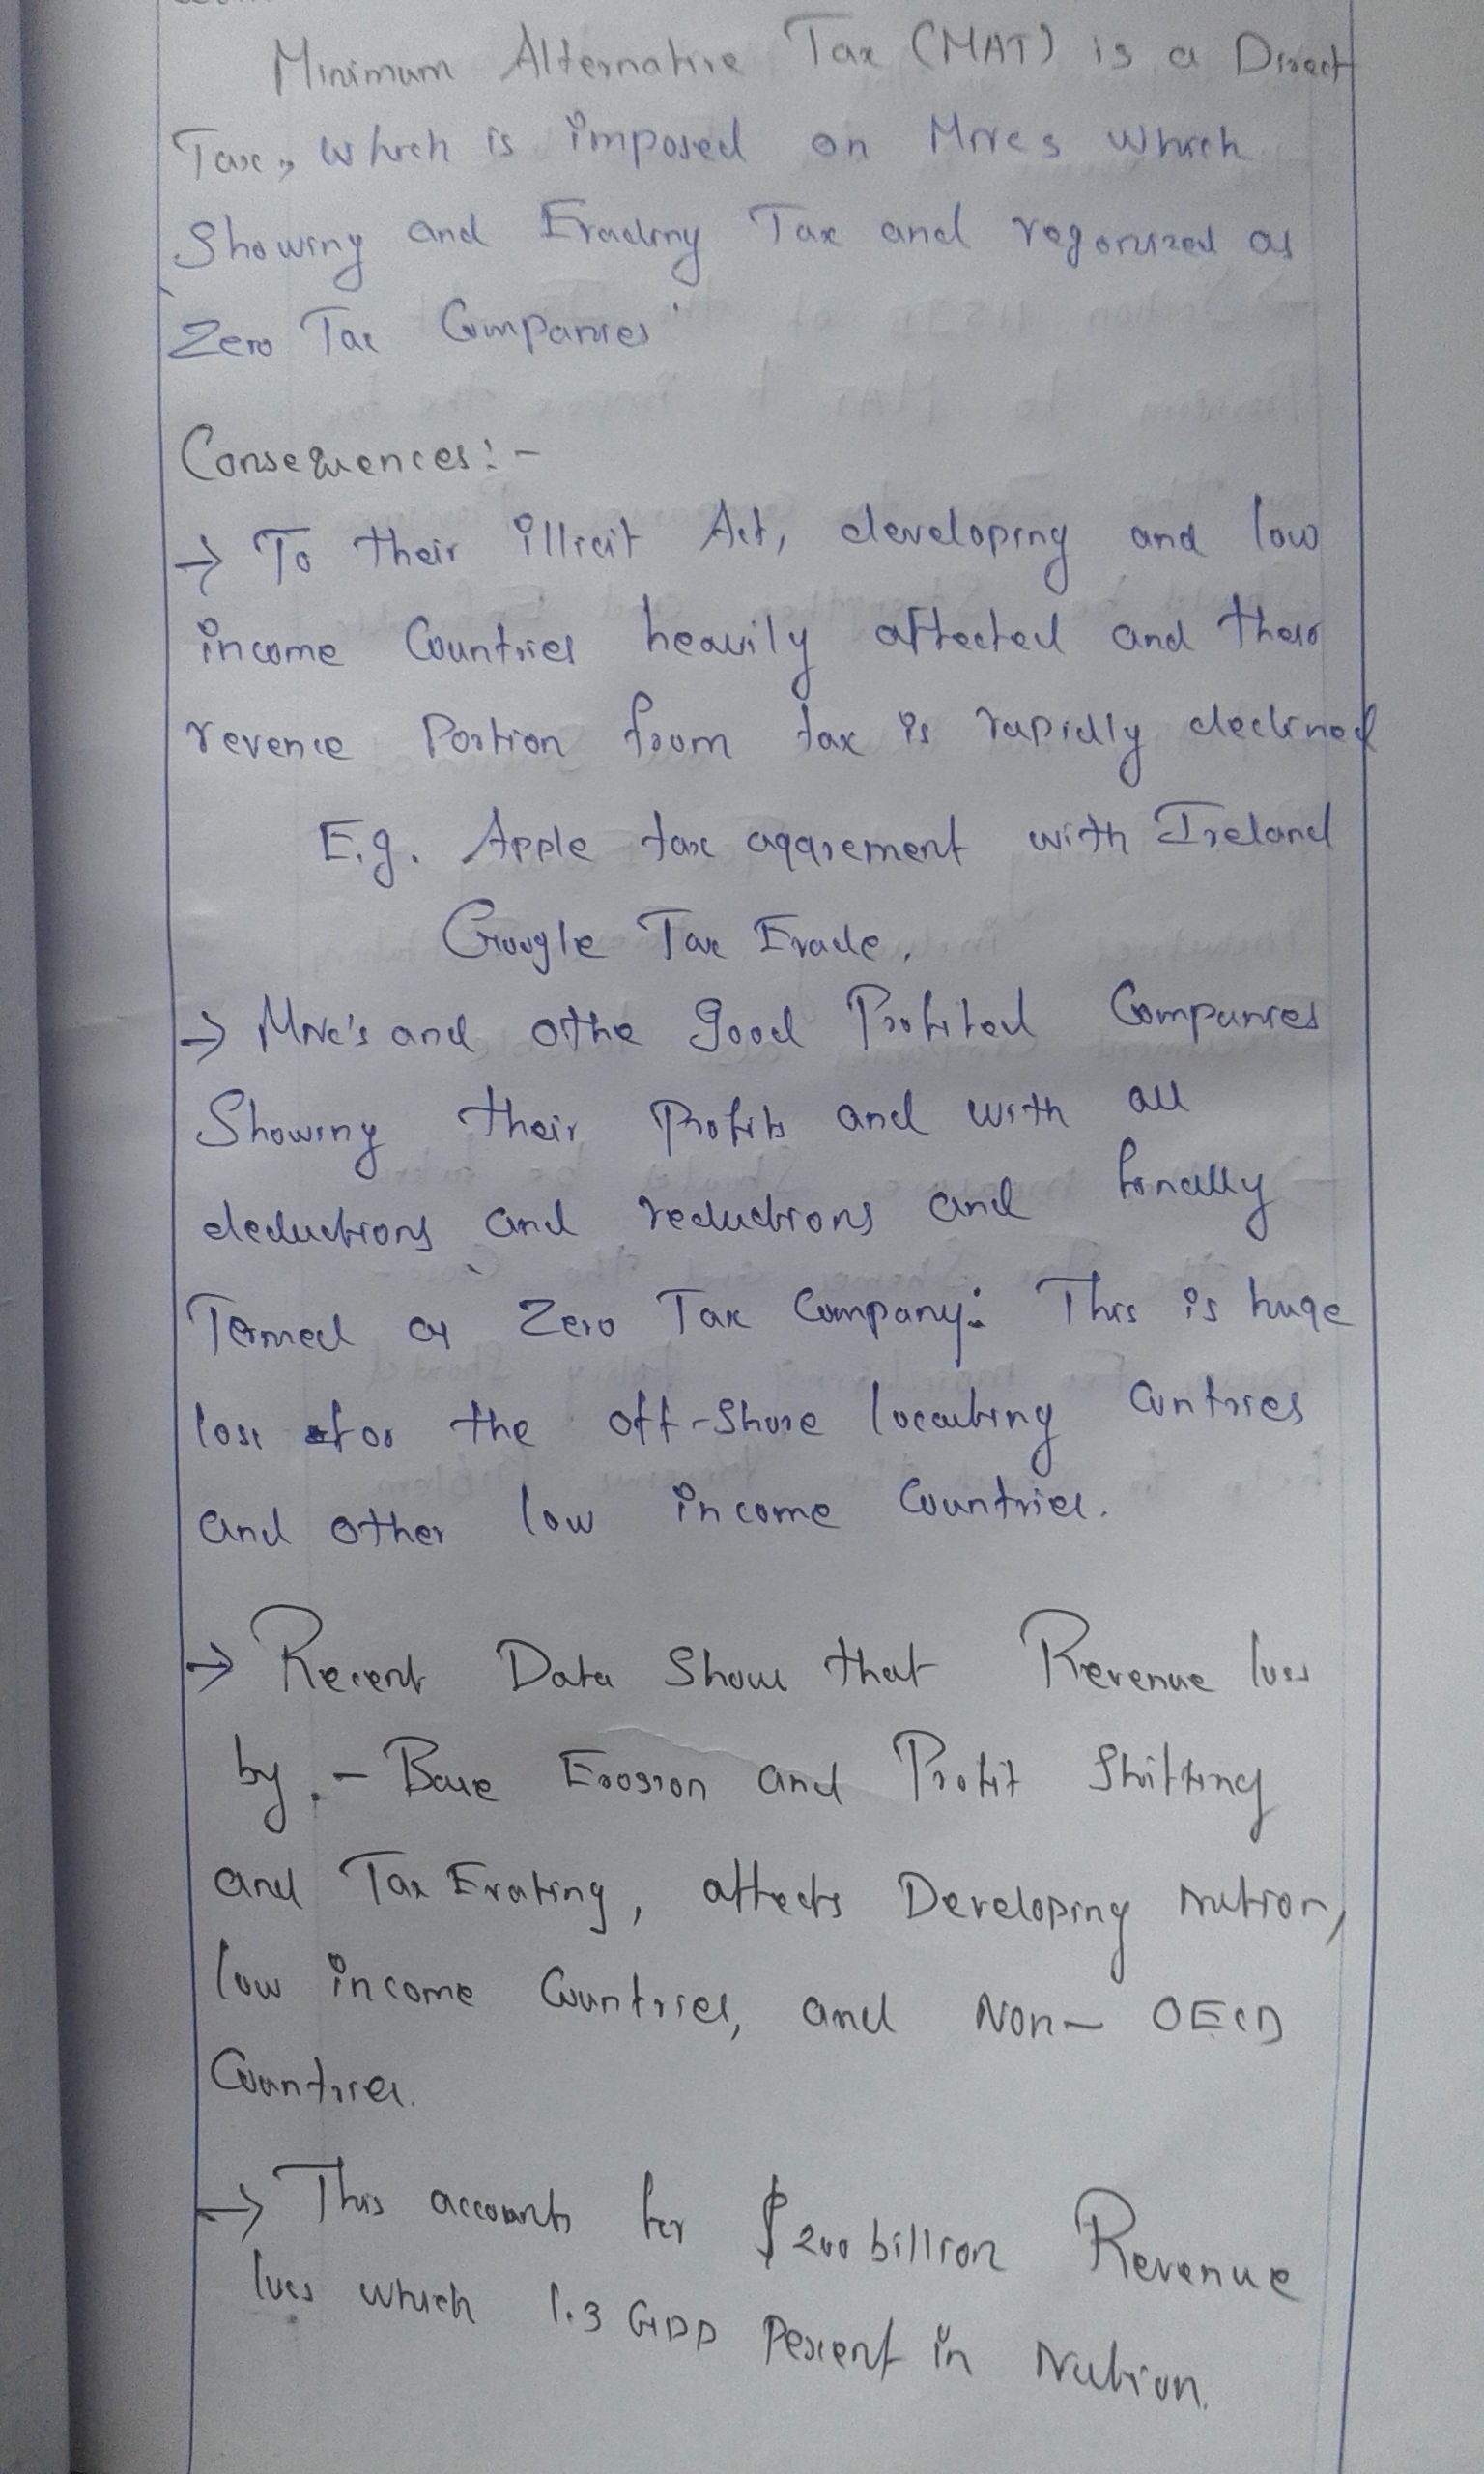 Minimum Alternative Tax (MAT) is a Direct
Tax, which is imposed on MNCs which
Showing and Evading Tax and regonized as
Zero Tax Companies
Consequences:-
→ To their illicit Act, developing and low
income Countries heavily affected and their
revence Portion from tax is rapidly declined
E.g. Apple tax aggrement with Ireland
Google Tax Evade.
→ MNC's and othe good Profited Companies
Showing their Profits and with all
deductions and reductions and finally
Termed as Zero Tax Company. This is huge
loss for the off-shore locating Cuntries
and other low income Countries.
→ Recent Data Show that Revenue loss
by.- Base Erosion and Profit Shifting
and Tax Evating, affects Developing Nation,
low income Countries, and Non- OECD
Countries.
→ This accounts for $200 billion Revenue
loss which 1.3 GDP Percent in Nation.